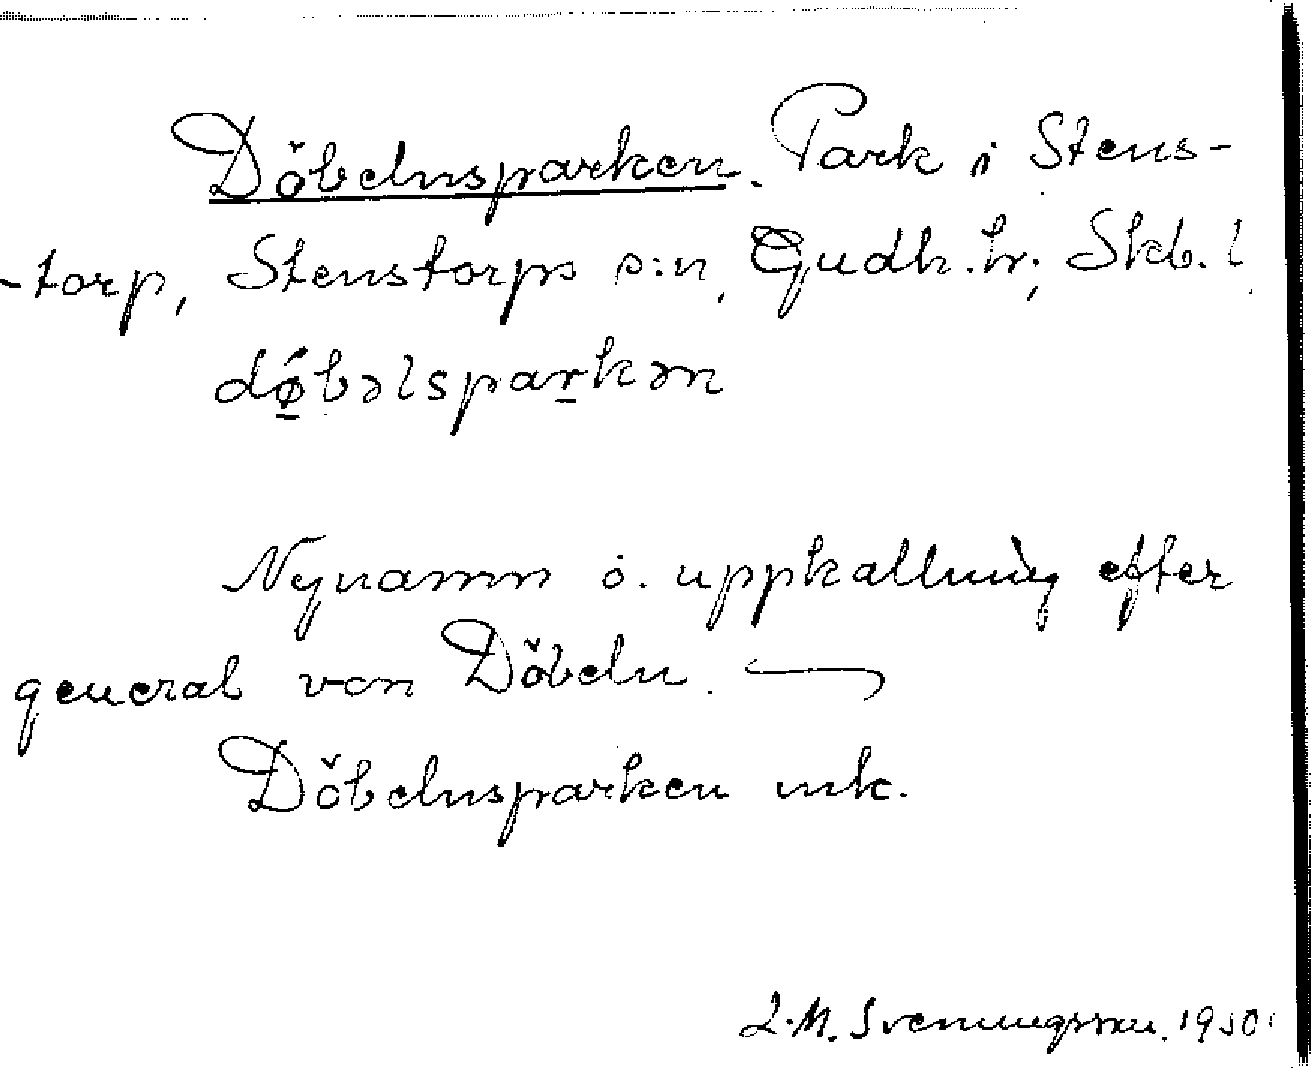 Döbelnsparken. Park i Stens-
-torp, Stenstorps s:n, Gudh. hr; Skb. l.
dǿ̱bəlspar̠kən
Nynamn o. uppkallning efter
general von Döbeln.
Döbelnsparken mk.
L.M. Svenungsson. 1930.